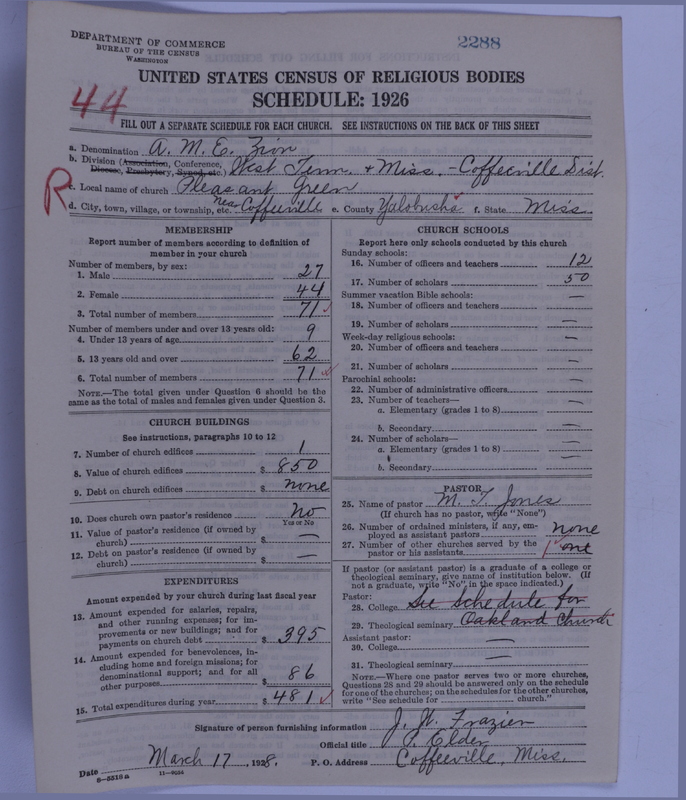 DEPARTMENT OF COMMERCE
BUREAU OF THE CENSUS
WASHINGTON
2288
UNITED STATES CENSUS OF RELIGIOUS BODIES
SCHEDULE: 1926
44
FILL OUT A SEPARATE SCHEDULE FOR EACH CHURCH. SEE INSTRUCTIONS ON THE BACK OF THIS SHEET
a. Denomination A. M. E. Zion
b. Division (Association, Conference, Diocese, Presbytery, Synod, etc.) West Tenn. + Miss. - Coffeeville Dist.
R
c. Local name of church Pleasant Green
d. City, town, village, or township, etc. near Coffeeville e. County Yalobusha f. State Miss.
MEMBERSHIP
Report number of members according to definition of
member in your church
Number of members, by sex:
1. Male 27
2. Female 44
3. Total number of members 71
Number of members under and over 13 years old:
4. Under 13 years of age 9
5. 13 years old and over 62
6. Total number of members 71
NOTE.—The total given under Question 6 should be the
same as the total of males and females given under Question 3.
CHURCH BUILDINGS
See instructions, paragraphs 10 to 12
7. Number of church edifices 1
8. Value of church edifices $ 850
9. Debt on church edifices $ none
10. Does church own pastor's residence no
Yes or No
11. Value of pastor's residence (if owned by
church) $ —
12. Debt on pastor's residence (if owned by
church) $ —
EXPENDITURES
Amount expended by your church during last fiscal year
13. Amount expended for salaries, repairs,
and other running expenses; for im-
provements or new buildings; and for
payments on church debt $ 395
14. Amount expended for benevolences, in-
cluding home and foreign missions; for
denominational support; and for all
other purposes $ 86
15. Total expenditures during year $ 481
CHURCH SCHOOLS
Report here only schools conducted by this church
Sunday schools:
16. Number of officers and teachers 12
17. Number of scholars 50
Summer vacation Bible schools:
18. Number of officers and teachers —
19. Number of scholars —
Week-day religious schools:
20. Number of officers and teachers —
21. Number of scholars —
Parochial schools:
22. Number of administrative officers —
23. Number of teachers—
a. Elementary (grades 1 to 8) —
b. Secondary —
24. Number of scholars—
a. Elementary (grades 1 to 8) —
b. Secondary —
PASTOR
25. Name of pastor M. T. Jones
(If church has no pastor, write "None")
26. Number of ordained ministers, if any, em-
ployed as assistant pastors none
27. Number of other churches served by the
pastor or his assistants 1 one
If pastor (or assistant pastor) is a graduate of a college or
theological seminary, give name of institution below. (If
not a graduate, write "No" in the space indicated.)
Pastor:
28. College See schedule for
29. Theological seminary Oakland Church
Assistant pastor:
30. College —
31. Theological seminary —
NOTE.—Where one pastor serves two or more churches,
Questions 28 and 29 should be answered only on the schedule
for one of the churches; on the schedules for the other churches,
write "See schedule for church."
Signature of person furnishing information J. W. Frazier
Official title P. Elder
Date March 17, 1928. P. O. Address Coffeeville, Miss.
8-5318 a